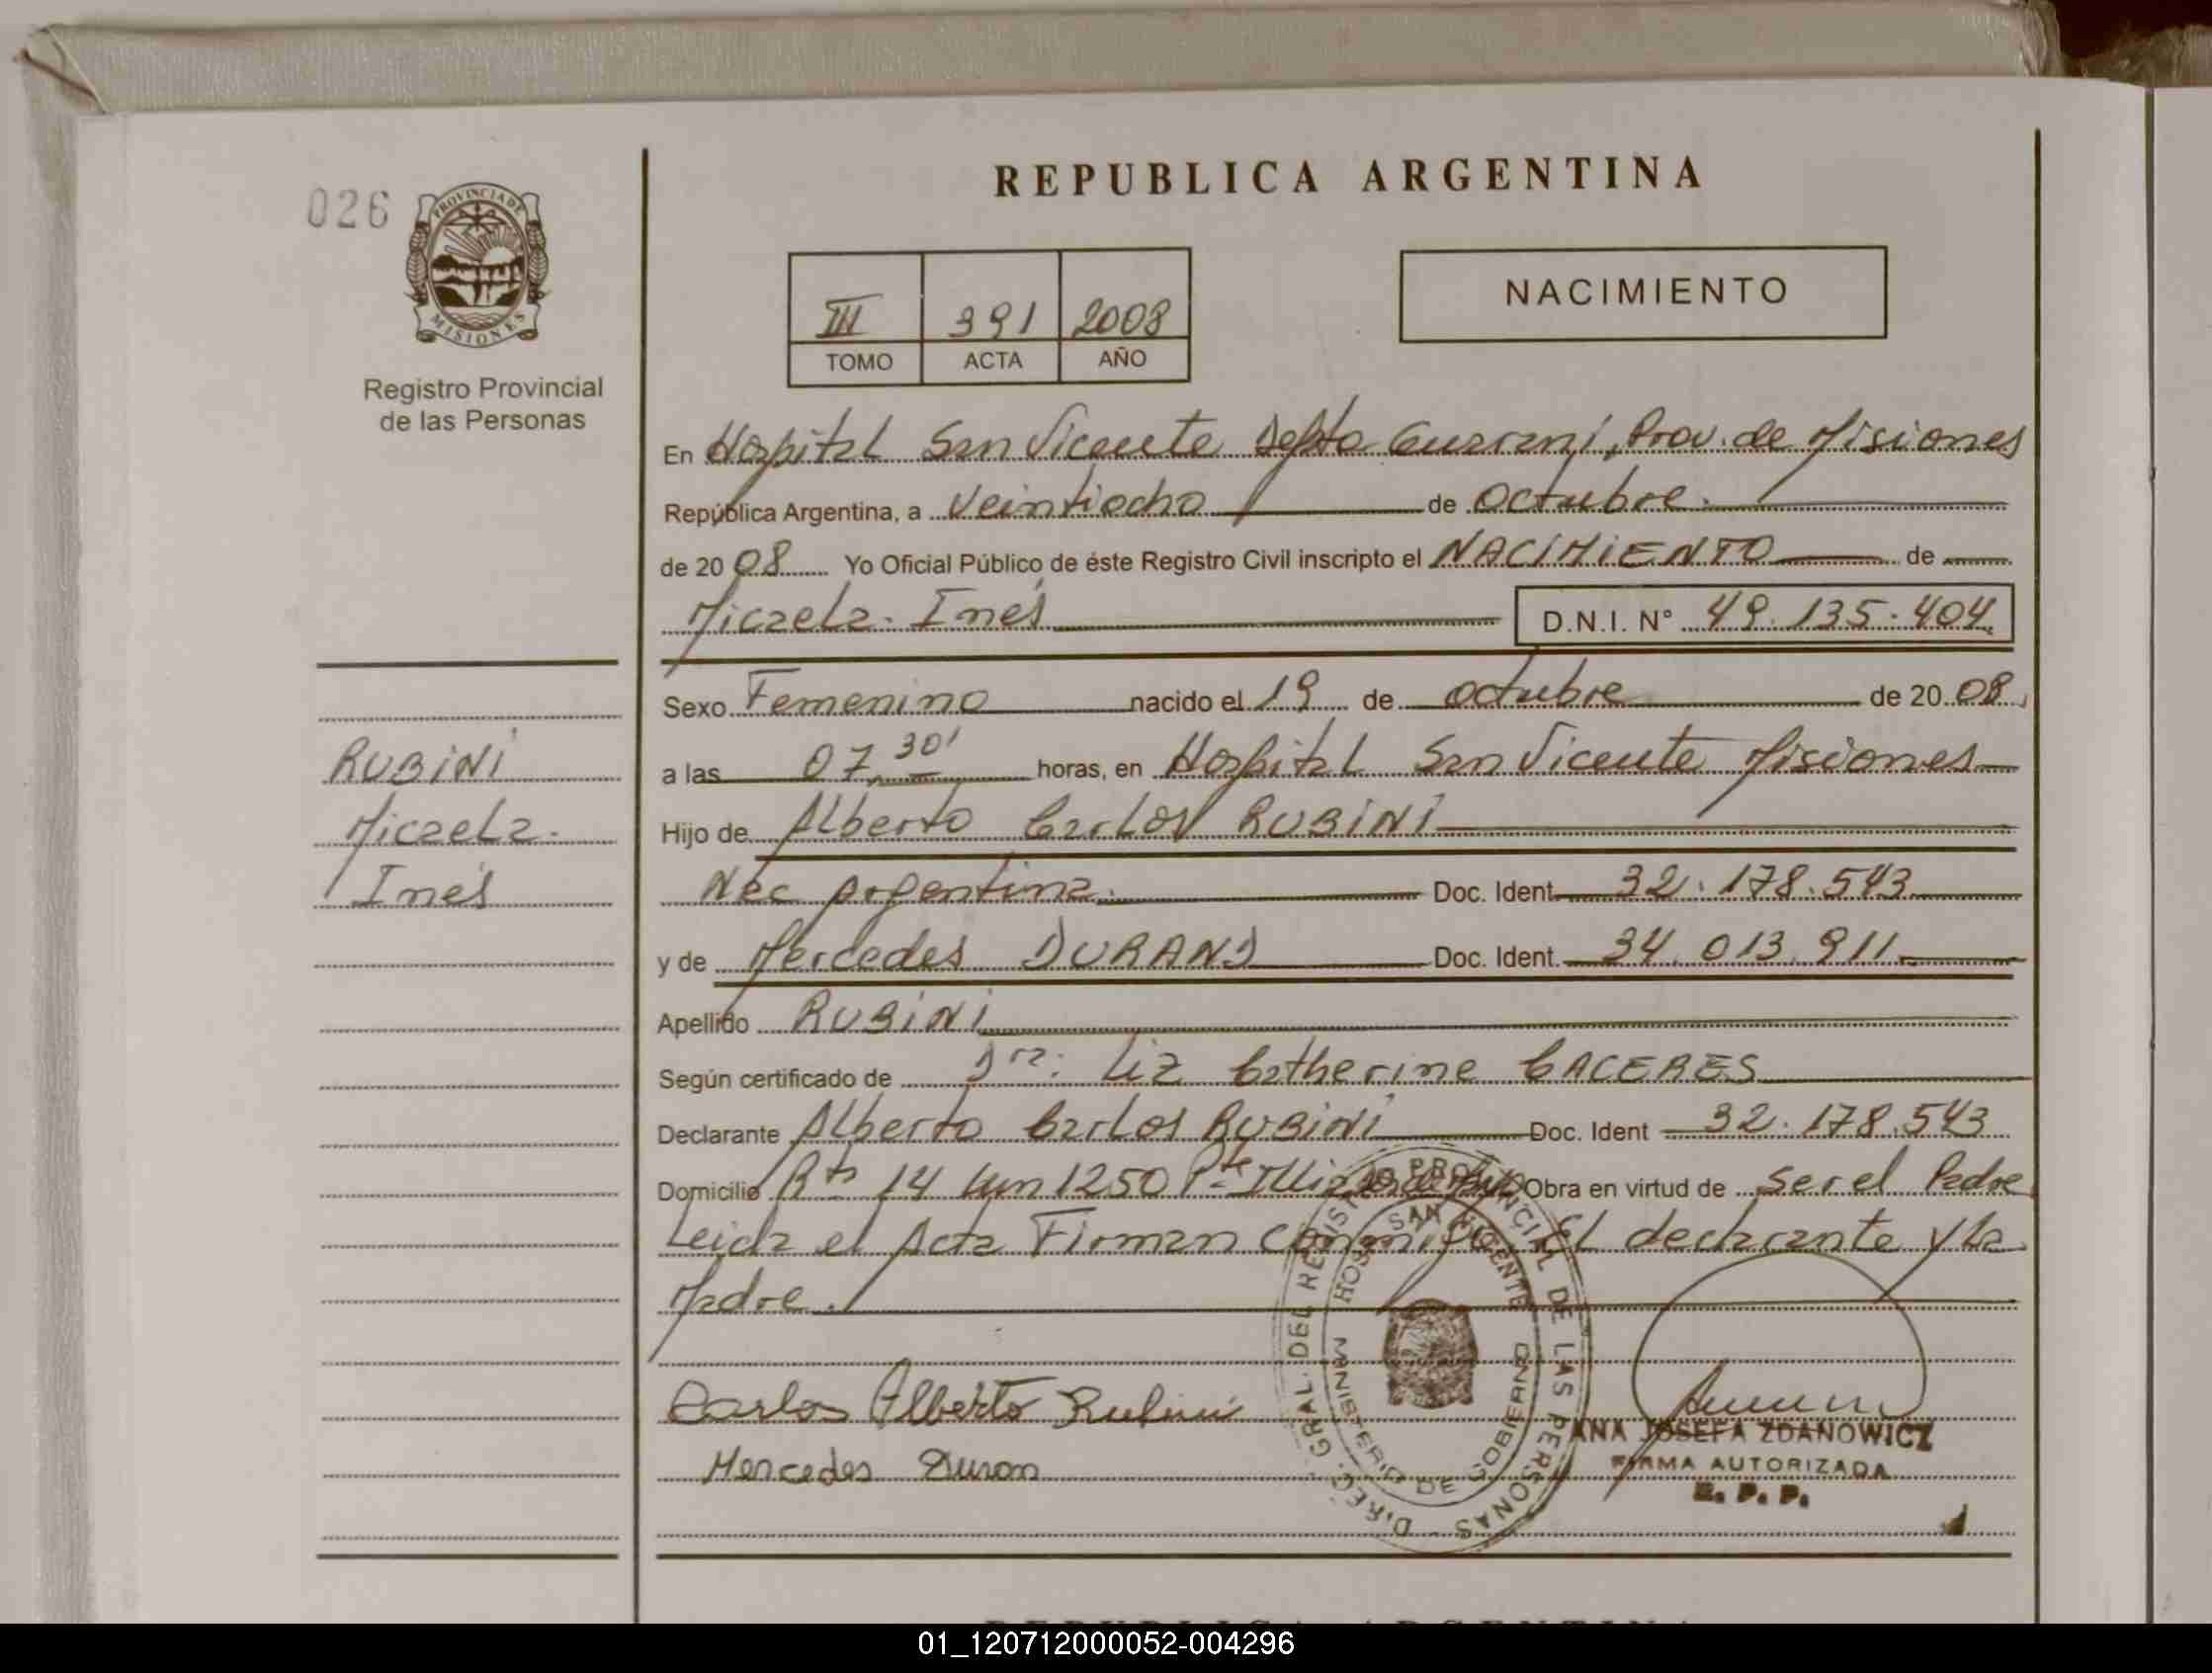 REPUBLICA ARGENTINA
026
PROVINCIA DE
MISIONES
Registro Provincial
de las Personas
III 391 2008
TOMO ACTA AÑO
NACIMIENTO
En Hospital San Vicente Depto Guarani, Prov. de Misiones
República Argentina, a Veintiocho de Octubre.
de 20 08 Yo Oficial Público de éste Registro Civil inscripto el NACIMIENTO de
Micaela. Inés D.N.I. N° 49.135.404
Sexo Femenino nacido el 19 de octubre de 20 08
a las 07,30' horas, en Hospital San Vicente Misiones
Hijo de Alberto Carlos RUBINI
Nac Argentina. Doc. Ident 32.178.543
y de Mercedes DURAND Doc. Ident. 34.013.911
Apellido RUBINI
Según certificado de Dra: Liz Catherine CACERES
Declarante Alberto Carlos RUBINI Doc. Ident 32.178.543
Domicilio Rta 14 km 1250 Pte Obra en virtud de ser el Padre
Leida el Acta Firman conmigo El declarante y La
Madre.
Carlos Alberto Rubini
Mercedes Duron
RUBINI
Micaela.
Inés
DIREC. GRAL. DEL REGIST PROVINCIAL DE LAS PERSONAS
HOSP SAN VICENTE
MINISTERIO DE GOBIERNO
ANA JOSEFA ZDANOWICZ
FIRMA AUTORIZADA
R. P. P.
REPUBLICA ARGENTINA
01_120712000052-004296